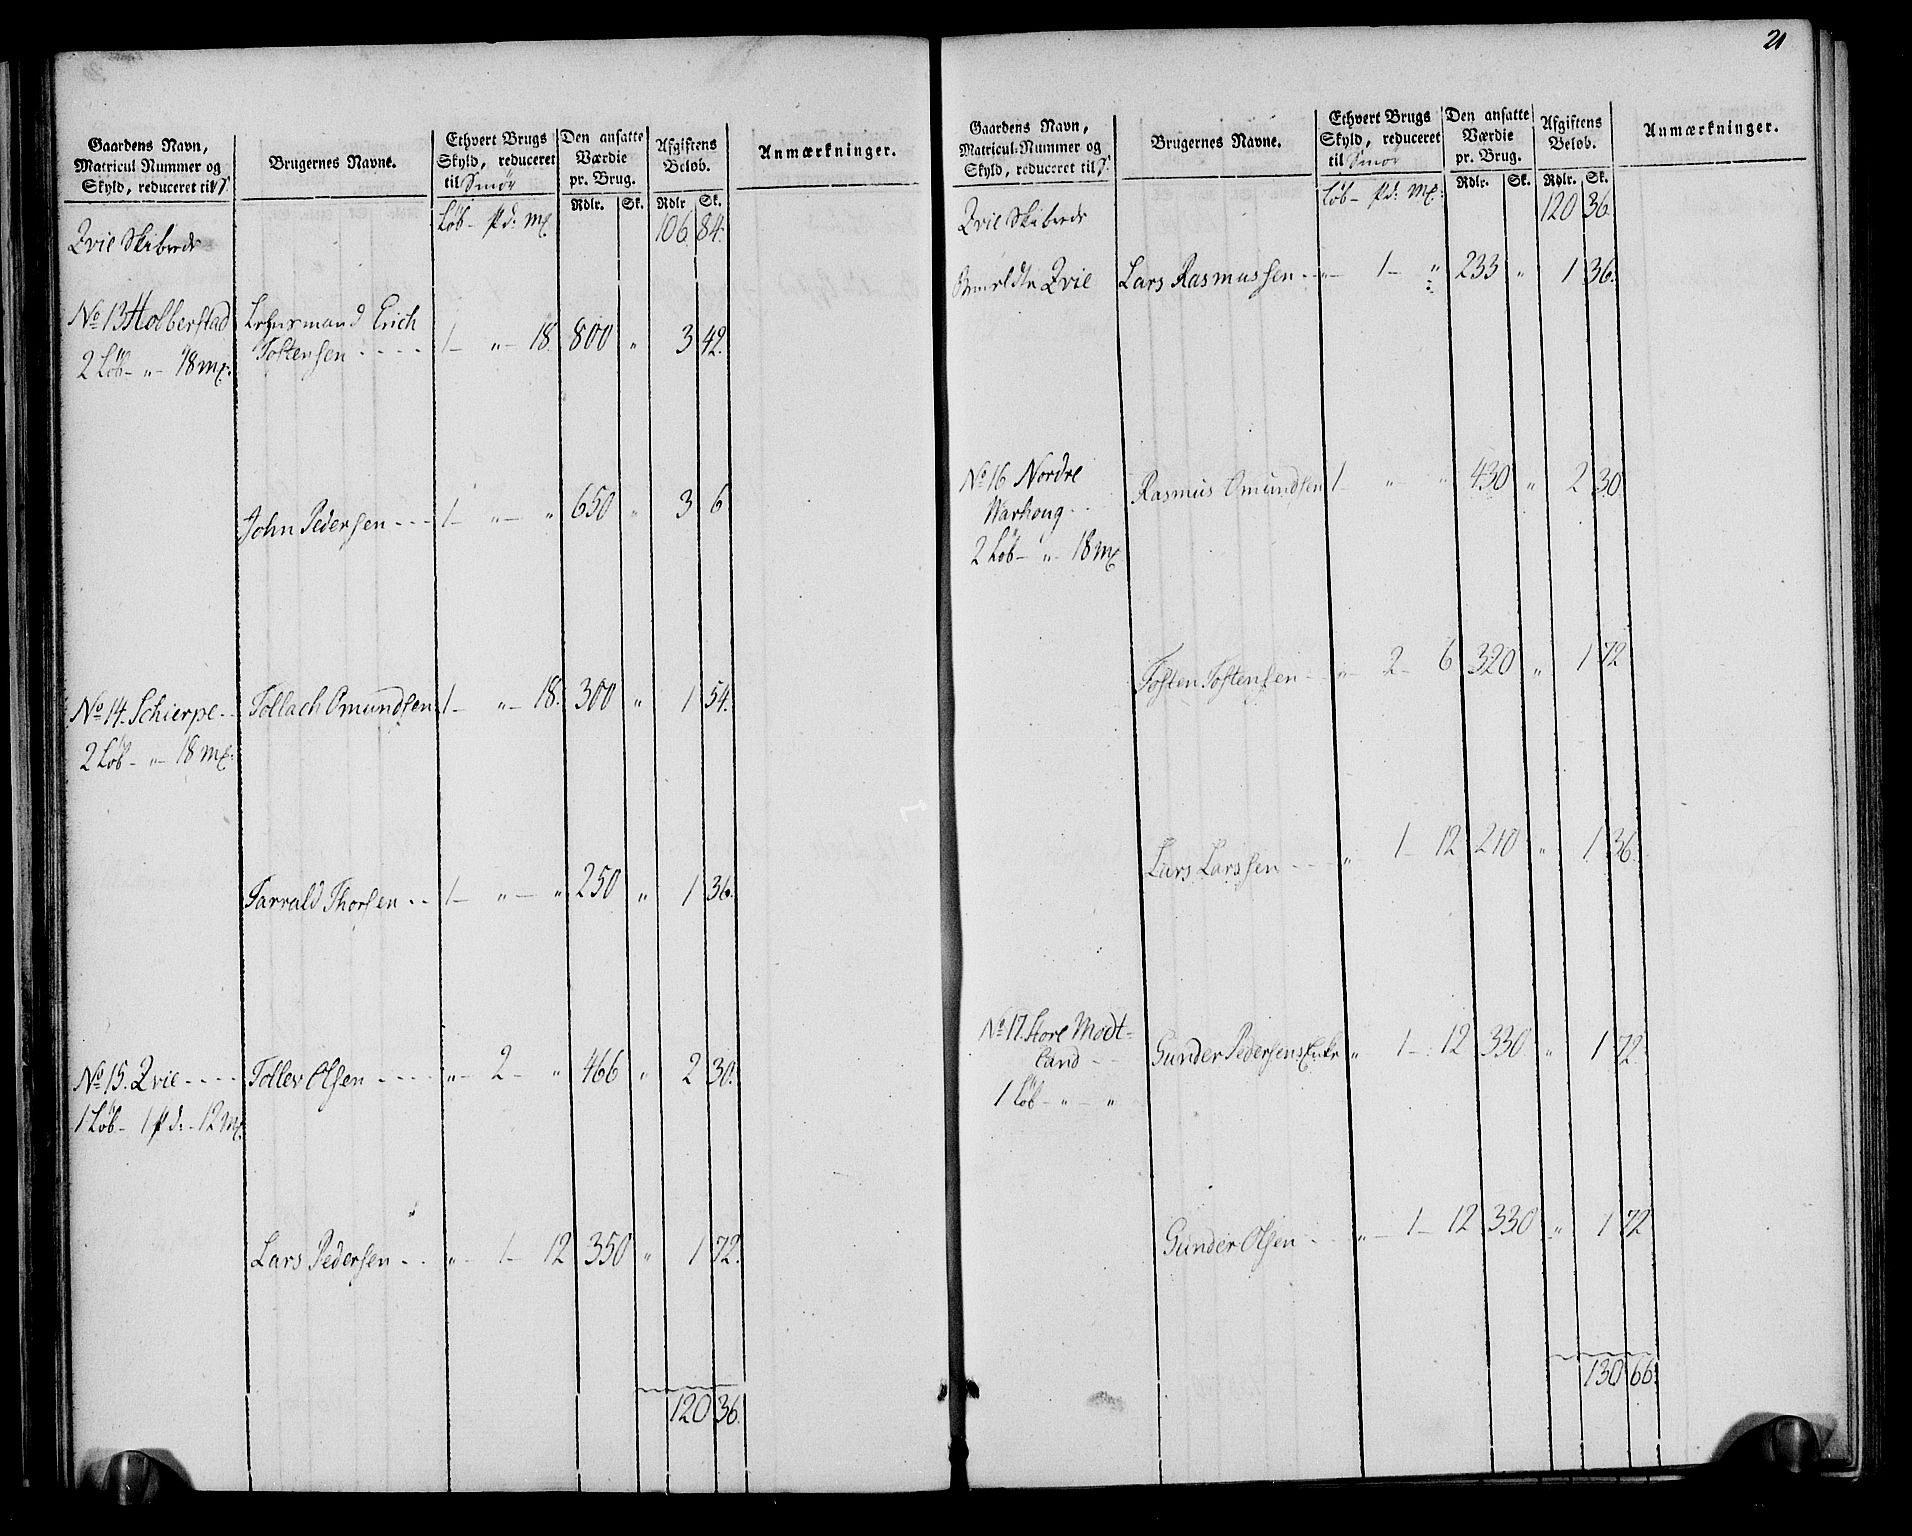 Gaardens Navn,
Matricul-Nummer og
Skyld, reduceret til S.
Brugernes Navne.
Ethvert Brugs
Skyld, reduceret
til Smör
Den ansatte
Værdie
pr. Brug.
Afgiftens
Beløb.
Anmærkninger.
Rdlr. Sk. Rdlr Sk.
Qvie Skibrede Löb - pd: mk 106 84.
No 13 Holberstad Lehnsmand Erich
2 Löb - " - 18 mk: Tostensen .... 1 - " - 18. 800 " 3 42.
John Pedersen ... 1 - " - " 650 " 3 6
No 14. Schierpe - Tollach Omundsen 1 - " - 18. 300 " 1 54.
2 Löb - " - 18 mk:
Tarrald Thorsen .. 1 - " - " 250 " 1 36.
No 15. Qvie ---- Tollev Olsen ---- " - 2 - " 466 " 2 30.
1 Löb - 1 pd: - 12 mk
Lars Pedersen .. " - 1 - 12 350 " 1 72.
120 36.
21
Gaardens Navn,
Matricul-Nummer og
Skyld, reduceret til S.
Brugernes Navne.
Ethvert Brugs
Skyld, reduceret
til Smör
Den ansatte
Værdie
pr. Brug.
Afgiftens
Beløb.
Anmærkninger.
Rdlr. Sk. Rdlr. Sk.
Qvie Skibrede Löb - pd: mk: 120 36
Qvie Lars Rasmussen .. " - 1 - " 233 " 1 36.
No 16 Nordre Rasmus Omundsen 1 - " " 430 " 2 30.
Warhoug ..
2 Löb - " - 18 mk
Tosten Tostensen .. " - 2 - 6 320 " 1 72
Lars Larssen --- " 1 - 12 210 " 1 36.
No 17. Store Modt-
land -- Gunder Pedersens Enke " 1 - 12 330 " 1 72.
1 Löb - " - "
Gunder Olsen .. " - 1 - 12 330 " 1 72
130 66.